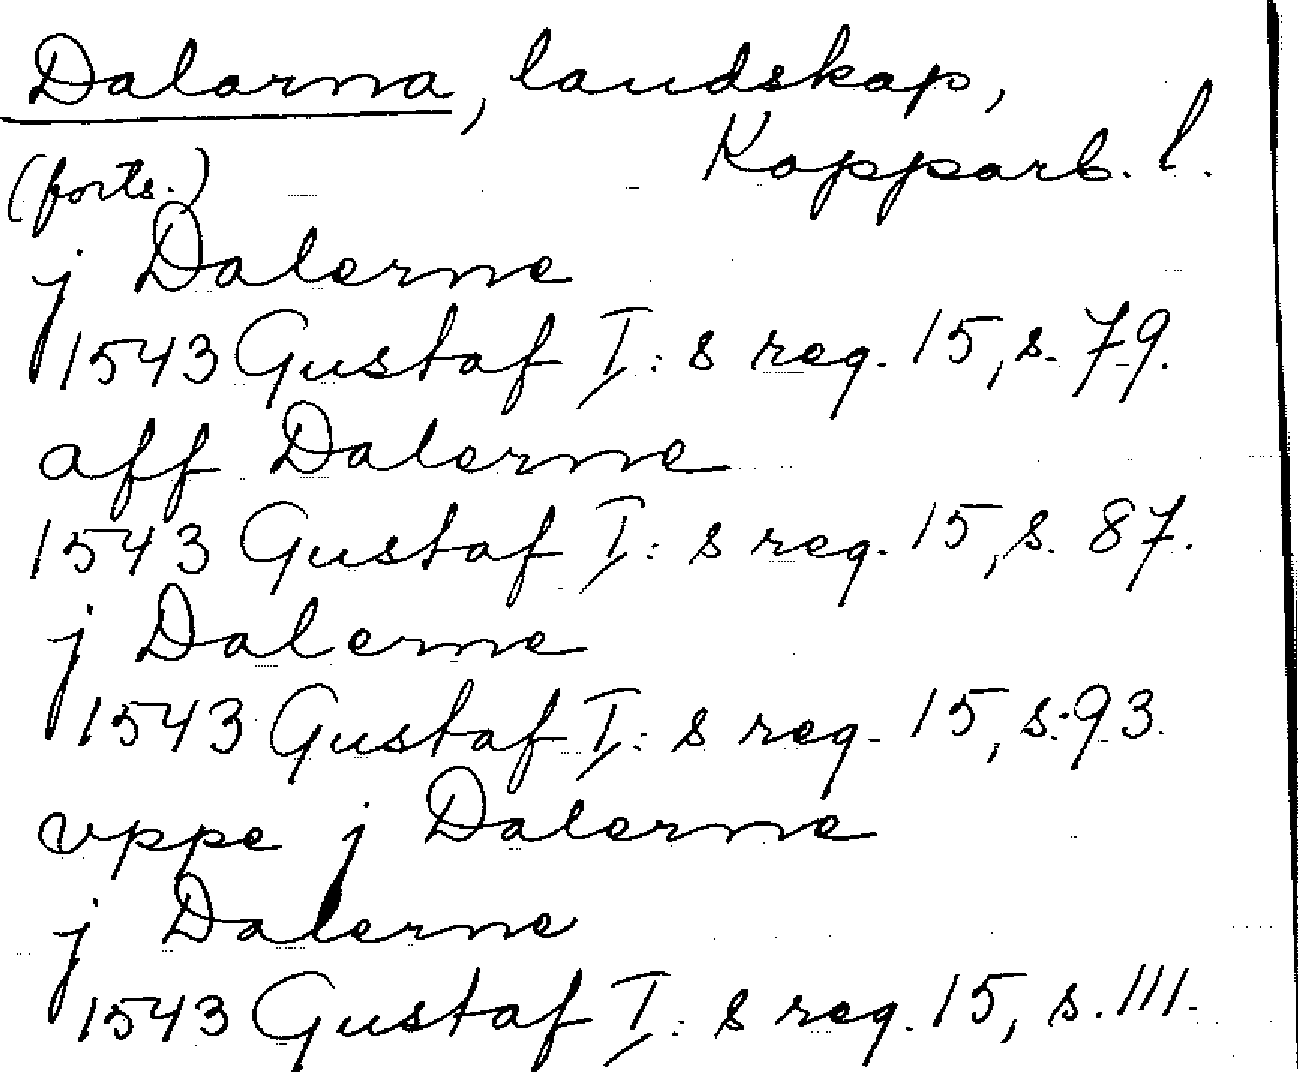 Dalarna, landskap,
Kopparb. l.
(forts.)
j Dalerne
1543 Gustaf I:s reg. 15, s. 79.
aff Dalerne
1543 Gustaf I:s reg. 15, s. 87.
j Dalerne
1543 Gustaf I:s reg. 15, s. 93.
vppe j Dalerne
j Dalerne
1543 Gustaf I:s reg. 15, s. 111.